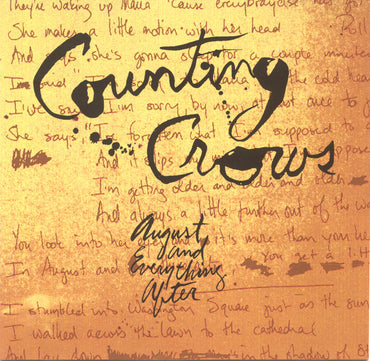 They're waking up Maria 'cause everybody else has go
She makes a little motion with her head Roll
And says she's gonna sleep for a couple minute
Counting
the cold head
I've I'm sorry by now, at least once to
She says, "I've forgotten what I'm supposed to
And it slips my I'm supposed
Crows
I'm getting older and older and older
And always a little further out of the wa
August
and
Everything
After
You look into her eyes and it's more than your he
In August and You get a litt
I stumbled into Washington Square just as the sun
I walked across the lawn to the cathedral
And lay down in the shadow of St